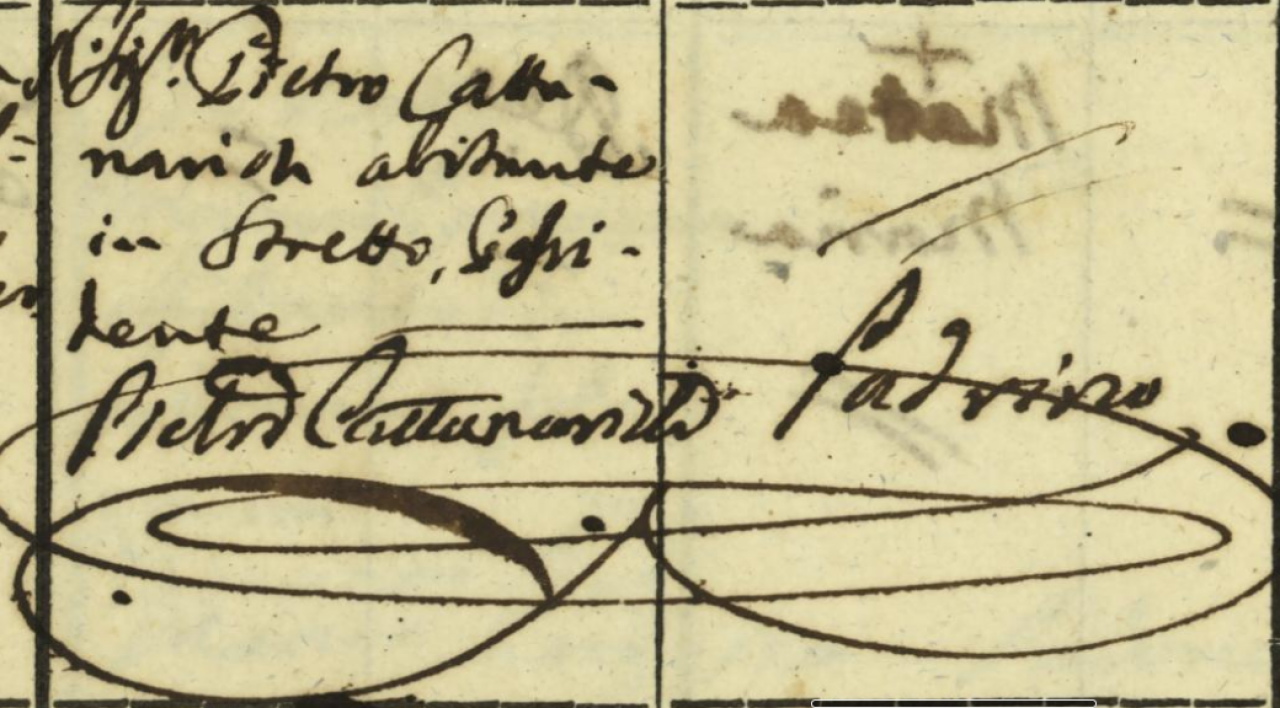 Sig.r Pietro Catta-
narich abitante
in Stretto, Possi-
dente
Pietro Cattanarich
Padrino